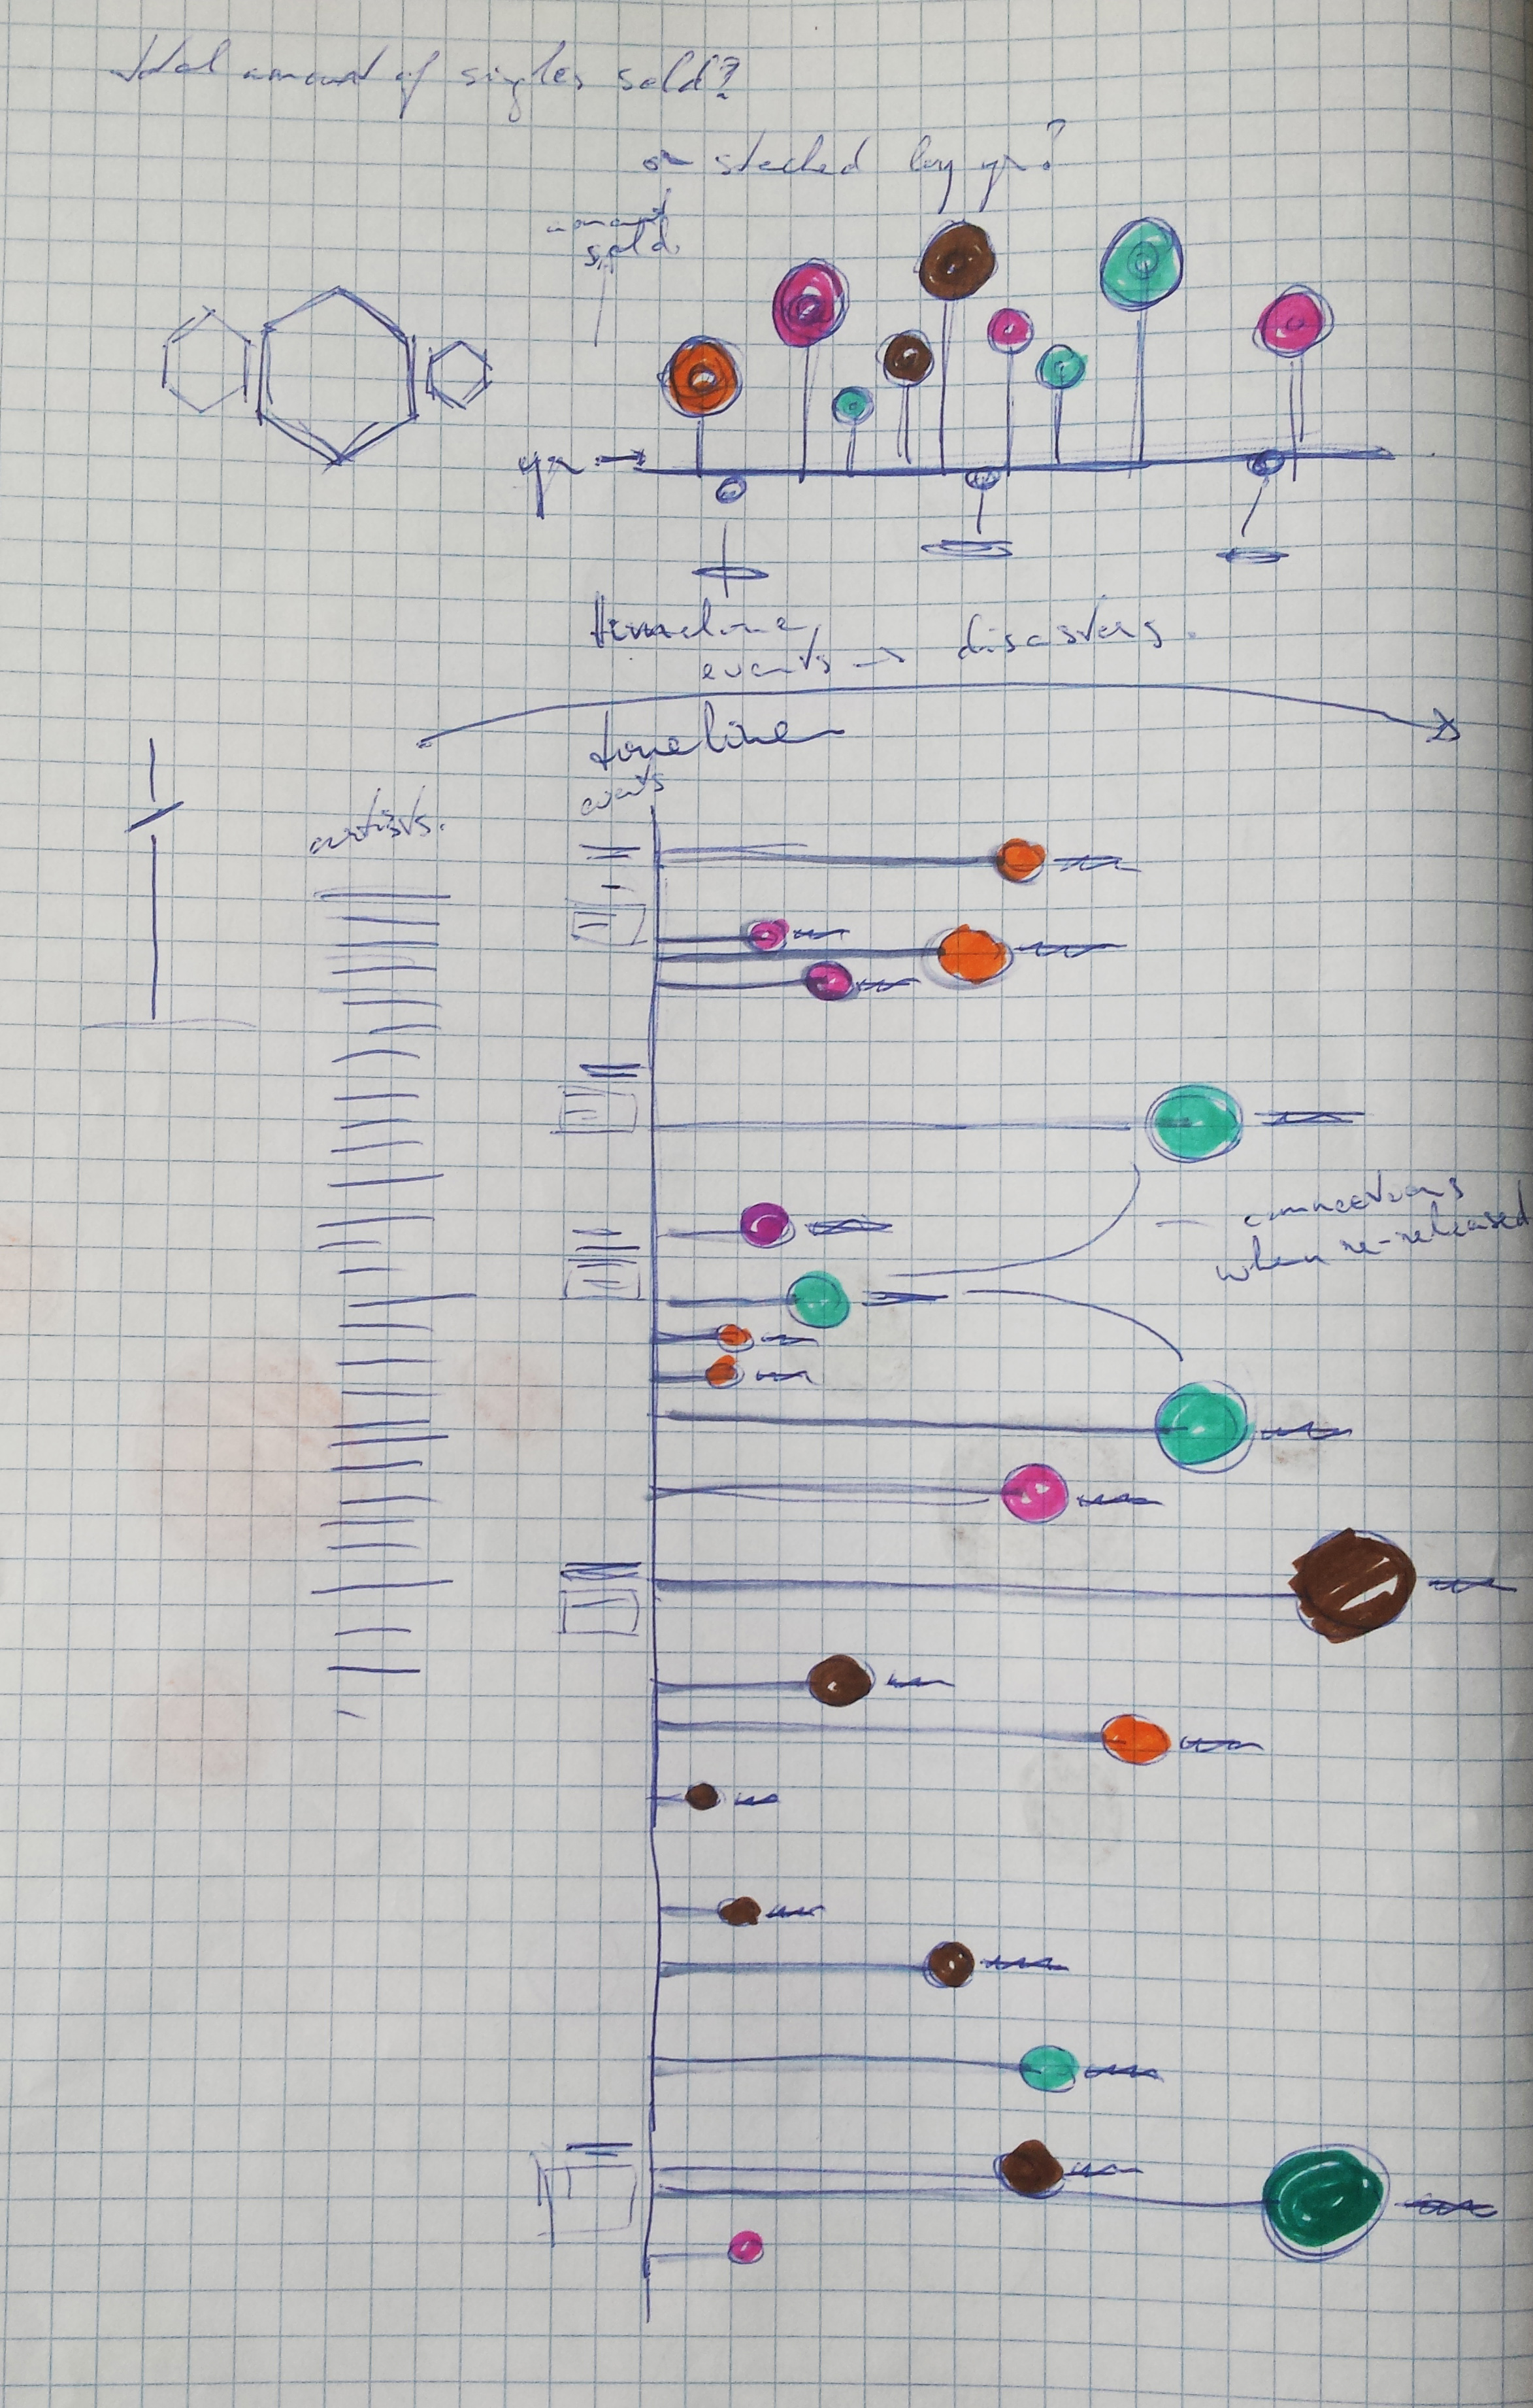 total amount of singles sold?
or stacked by yr?
amount
sold
yr →
timeline
events → disasters.
timeline
events
artists.
connections
when re-released